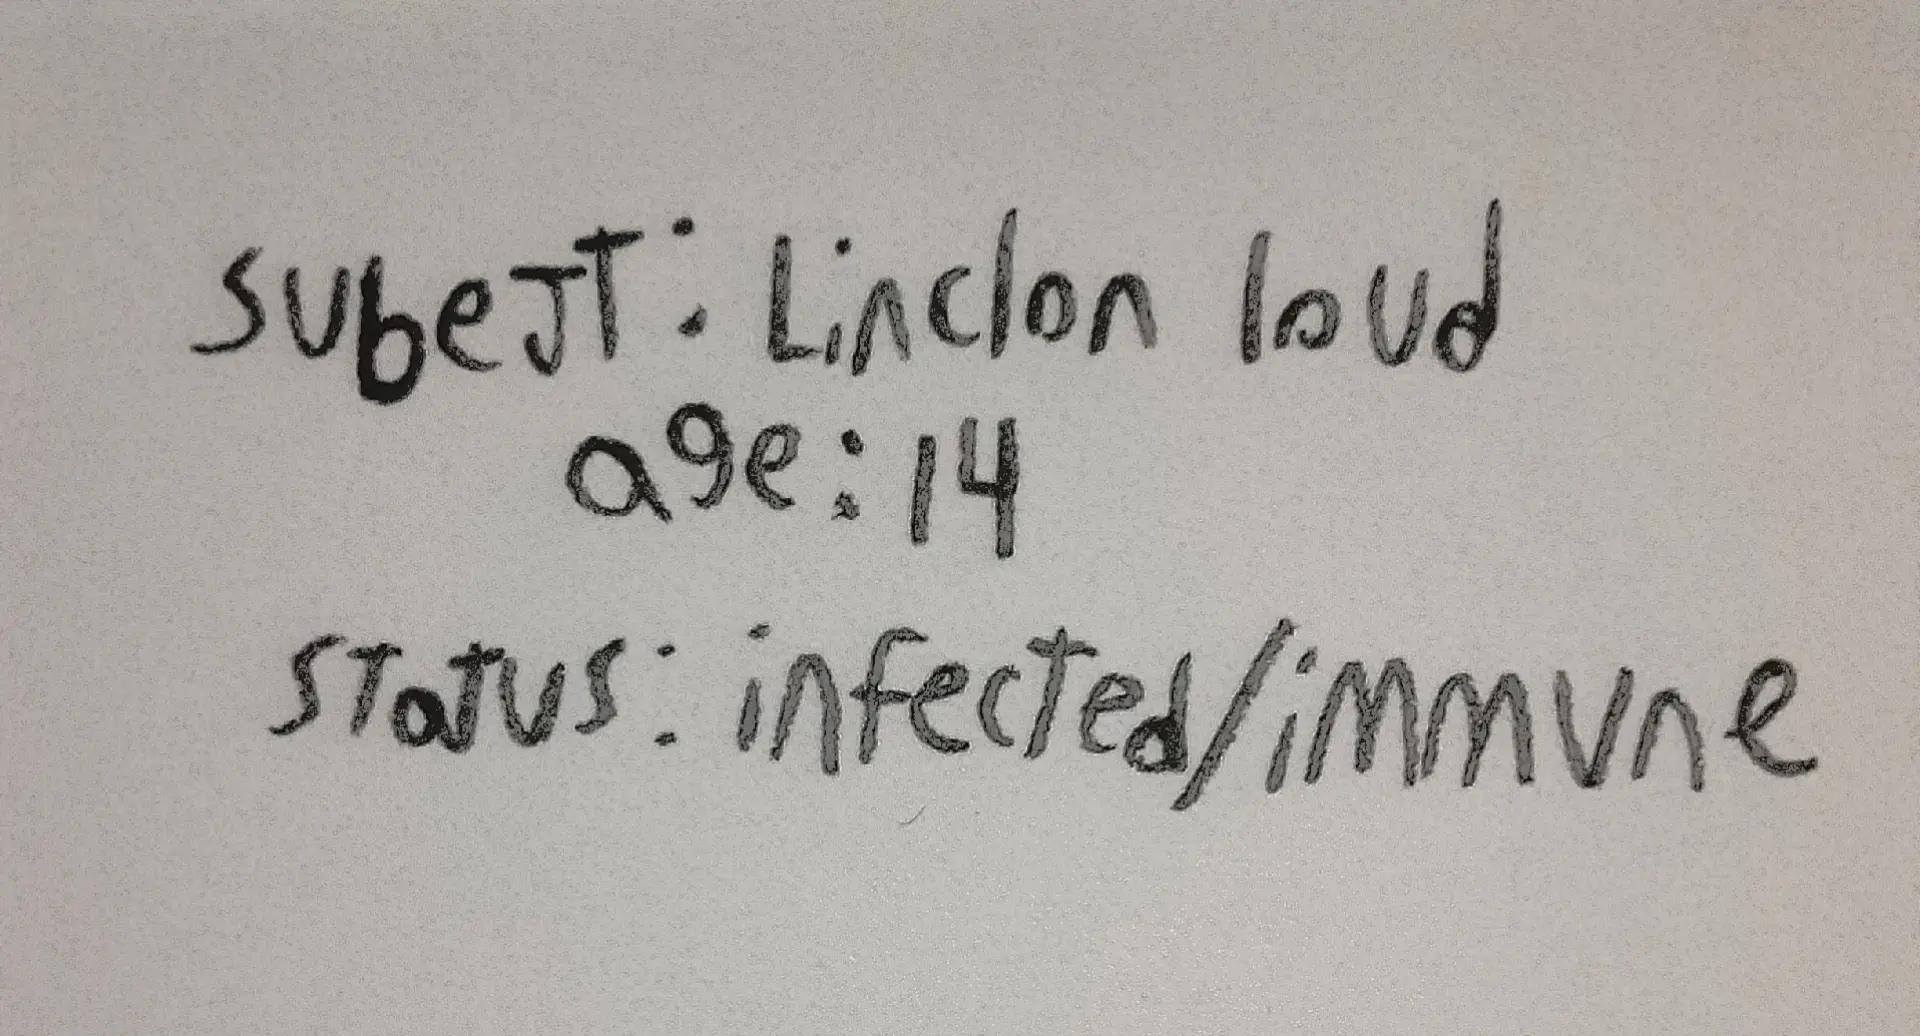 subeJT: Linclon loud
age: 14
status: infected/immune